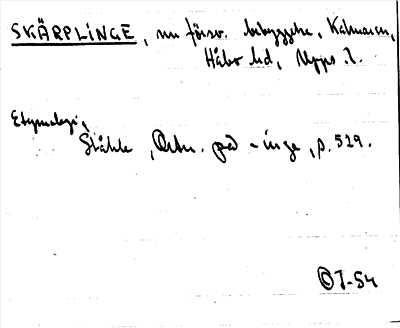 SKÄRPLINGE, nu försv. bebyggelse, Kalmaren,
Håbo hd, Upps. l.
Etymologi,
Ståhle, Ortn. på -inge, p. 529.
OJ-54